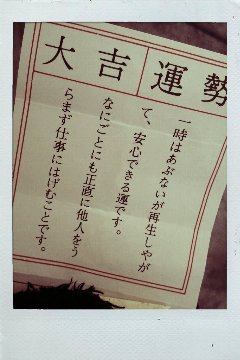 大吉運勢
一時はあぶないが再生しやが
て、安心できる運です。
なにごとにも正直に他人をう
らまず仕事にはげむことです。